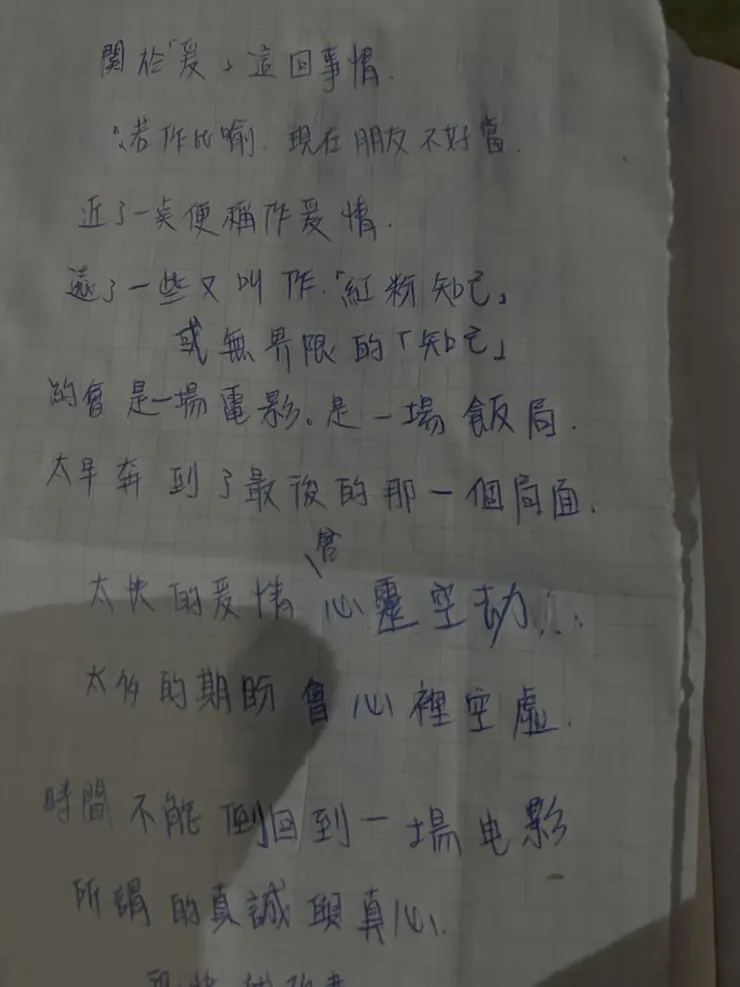 關於「爱」這回事情.
若作比喻.現在朋友不好當.
近了一点便稱作爱情.
遠了一些又叫作.「紅粉知己」
或無界限的「知己」
約會是一場電影。是一場飯局.
太早奔到了最後的那一個局面.
太快的爱情會心靈空劫...
太多的期盼會心裡空虛.
時間不能倒回到一場电影
所謂的真誠與真心.